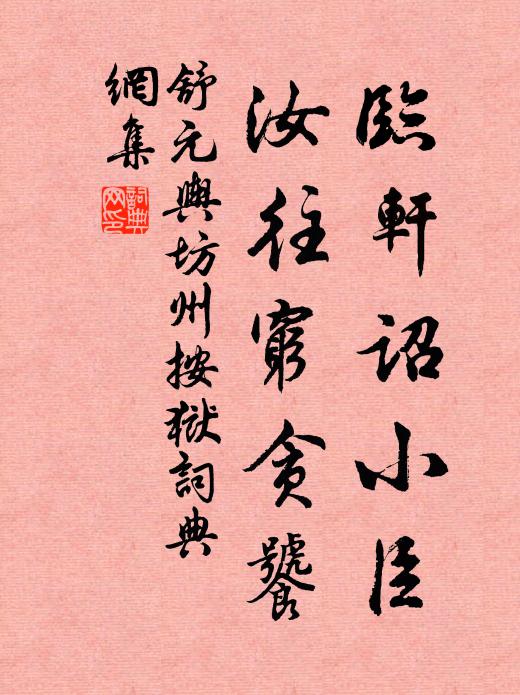 臨軒詔小臣
汝往窮貪饕
舒元輿坊州按獄詞典
網集
詞典网印